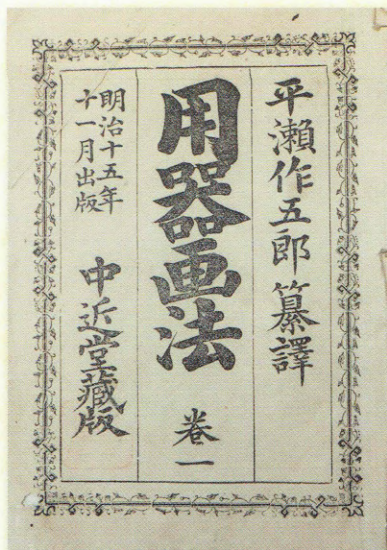 平瀬作五郎纂譯
用器画法 卷一
明治十五年
十一月出版
中近堂藏版